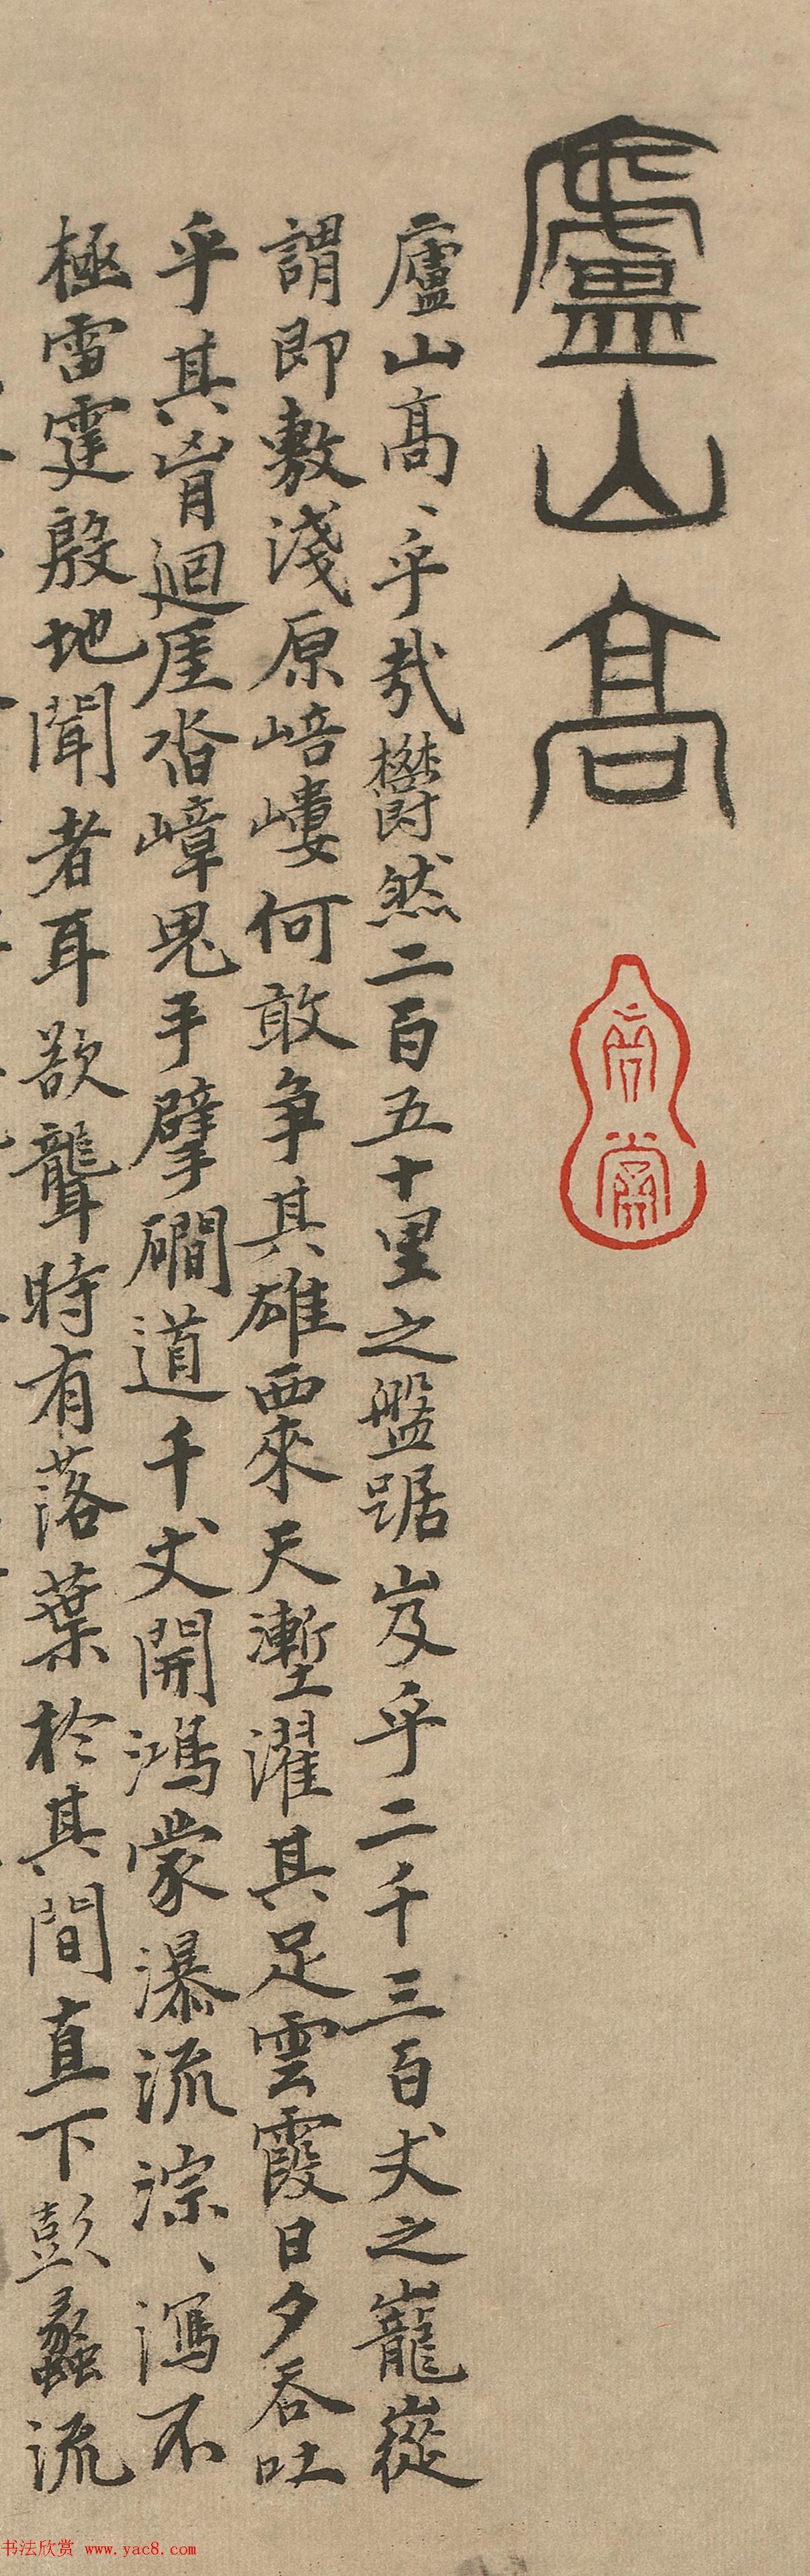 廬山高
廬山高、乎哉欝然二百五十里之盤踞岌乎二千三百丈之巃嵷
謂即敷淺原嵓嶁何敢争其雄西來天塹濯其足雲霞日夕吞吐
乎其胷迴厓沓嶂鬼手擘磵道千丈開鴻蒙瀑流淙、瀉不
極雷霆殷地聞者耳欲聾時有落葉於其間直下彭蠡流
书法欣赏 www.yac8.com